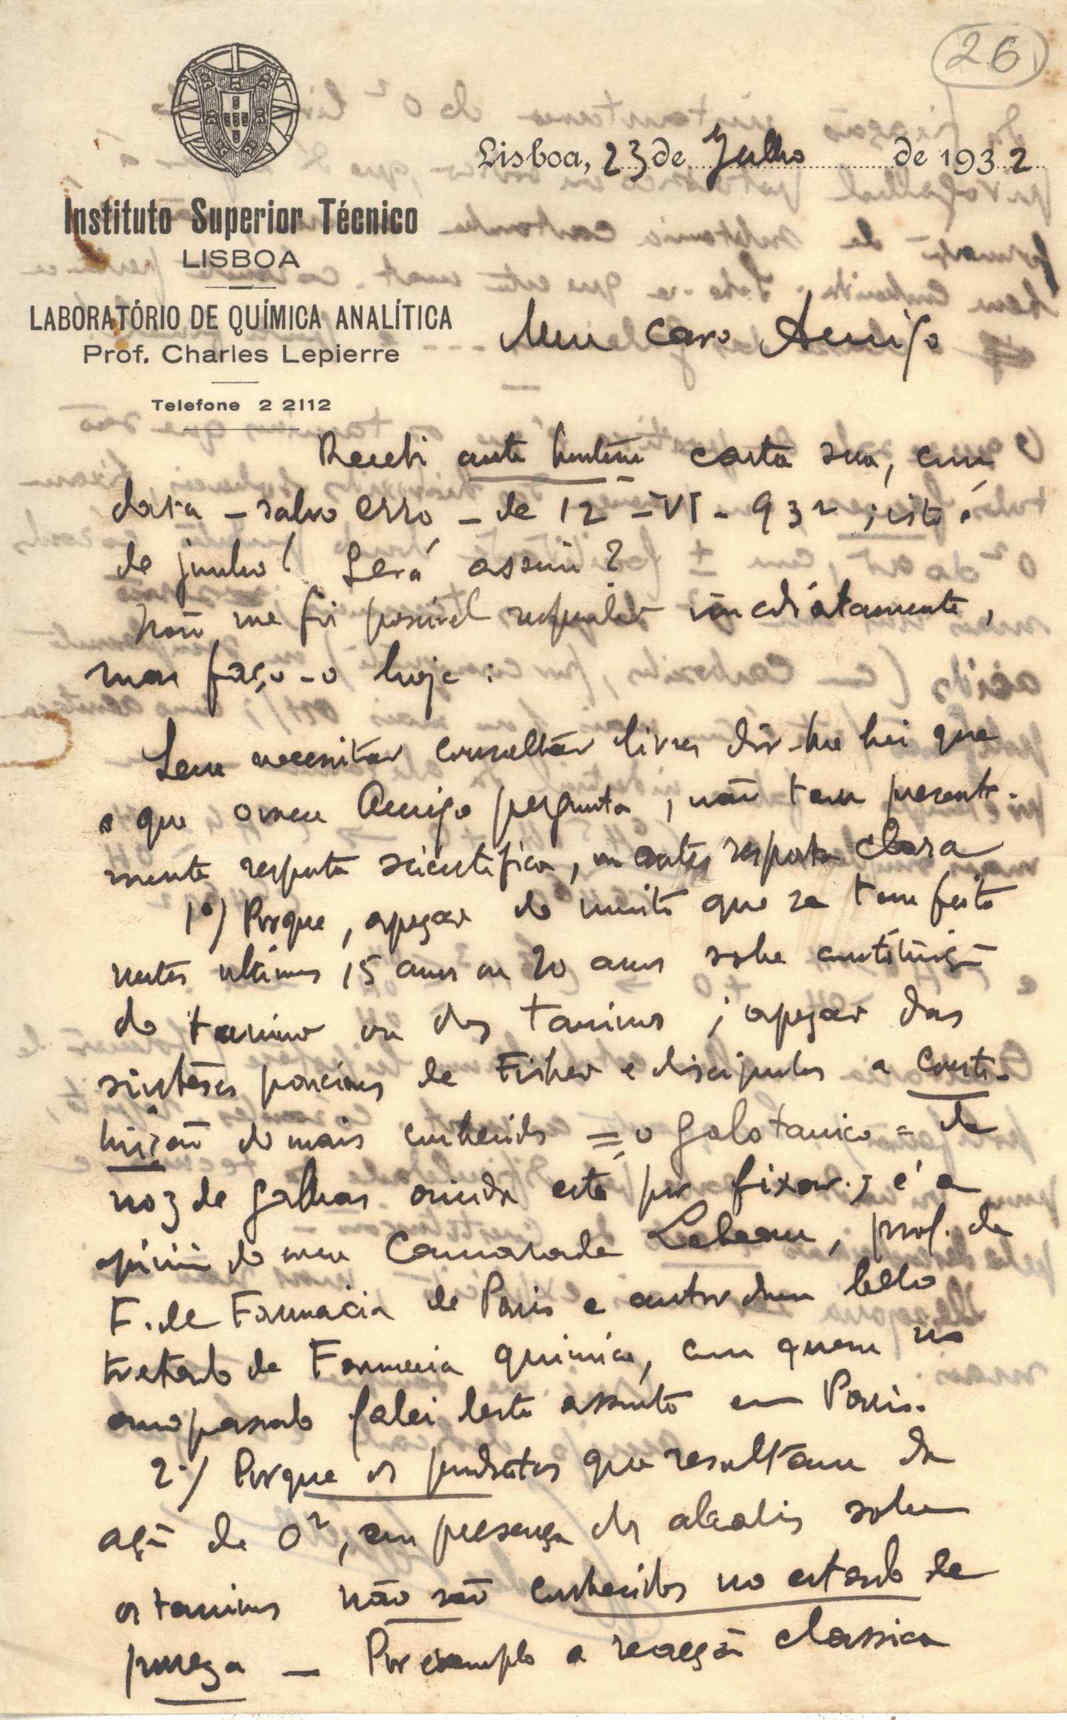 26
Lisboa, 23 de Julho de 1932
Instituto Superior Técnico
LISBOA
LABORATÓRIO DE QUÍMICA ANALÍTICA
Prof. Charles Lepierre
Telefone 2 2112
Meu caro Amigo
Recebi ante hontem carta sua, com
data – salvo erro – de 12 – VI – 932; isto é
de junho! Será assim?
Não me foi possivel responder imediatamente,
mas faço-o hoje:
Sem necessitar consultar livros dir-lhe hei que
o que o meu Amigo pergunta, não tem presente-
mente resposta scientifica, ou antes resposta clara
1º) Porque, apezar do muito que se tem feito
nestes ultimos 15 anos ou 20 anos sobre constituição
do tanino ou dos taninos; apezar das
sintéses parciaes de Fisher e discipulos a consti-
tuição do mais conhecido = o galotanico = da
noz de galhas ainda está por fixar; é a
opinião do meu Camarada Lebeau, prof. da
F. de Farmacia de Paris e autor dum bello
tratado de Farmacia quimica, com quem no
ano passado falei deste assunto em Paris.
2º) Porque os productos que resultam da
ação de O², em presença dos alcalis sobre
os taninos não são conhecidos no estado de
pureza – Por exemplo a reacção classica